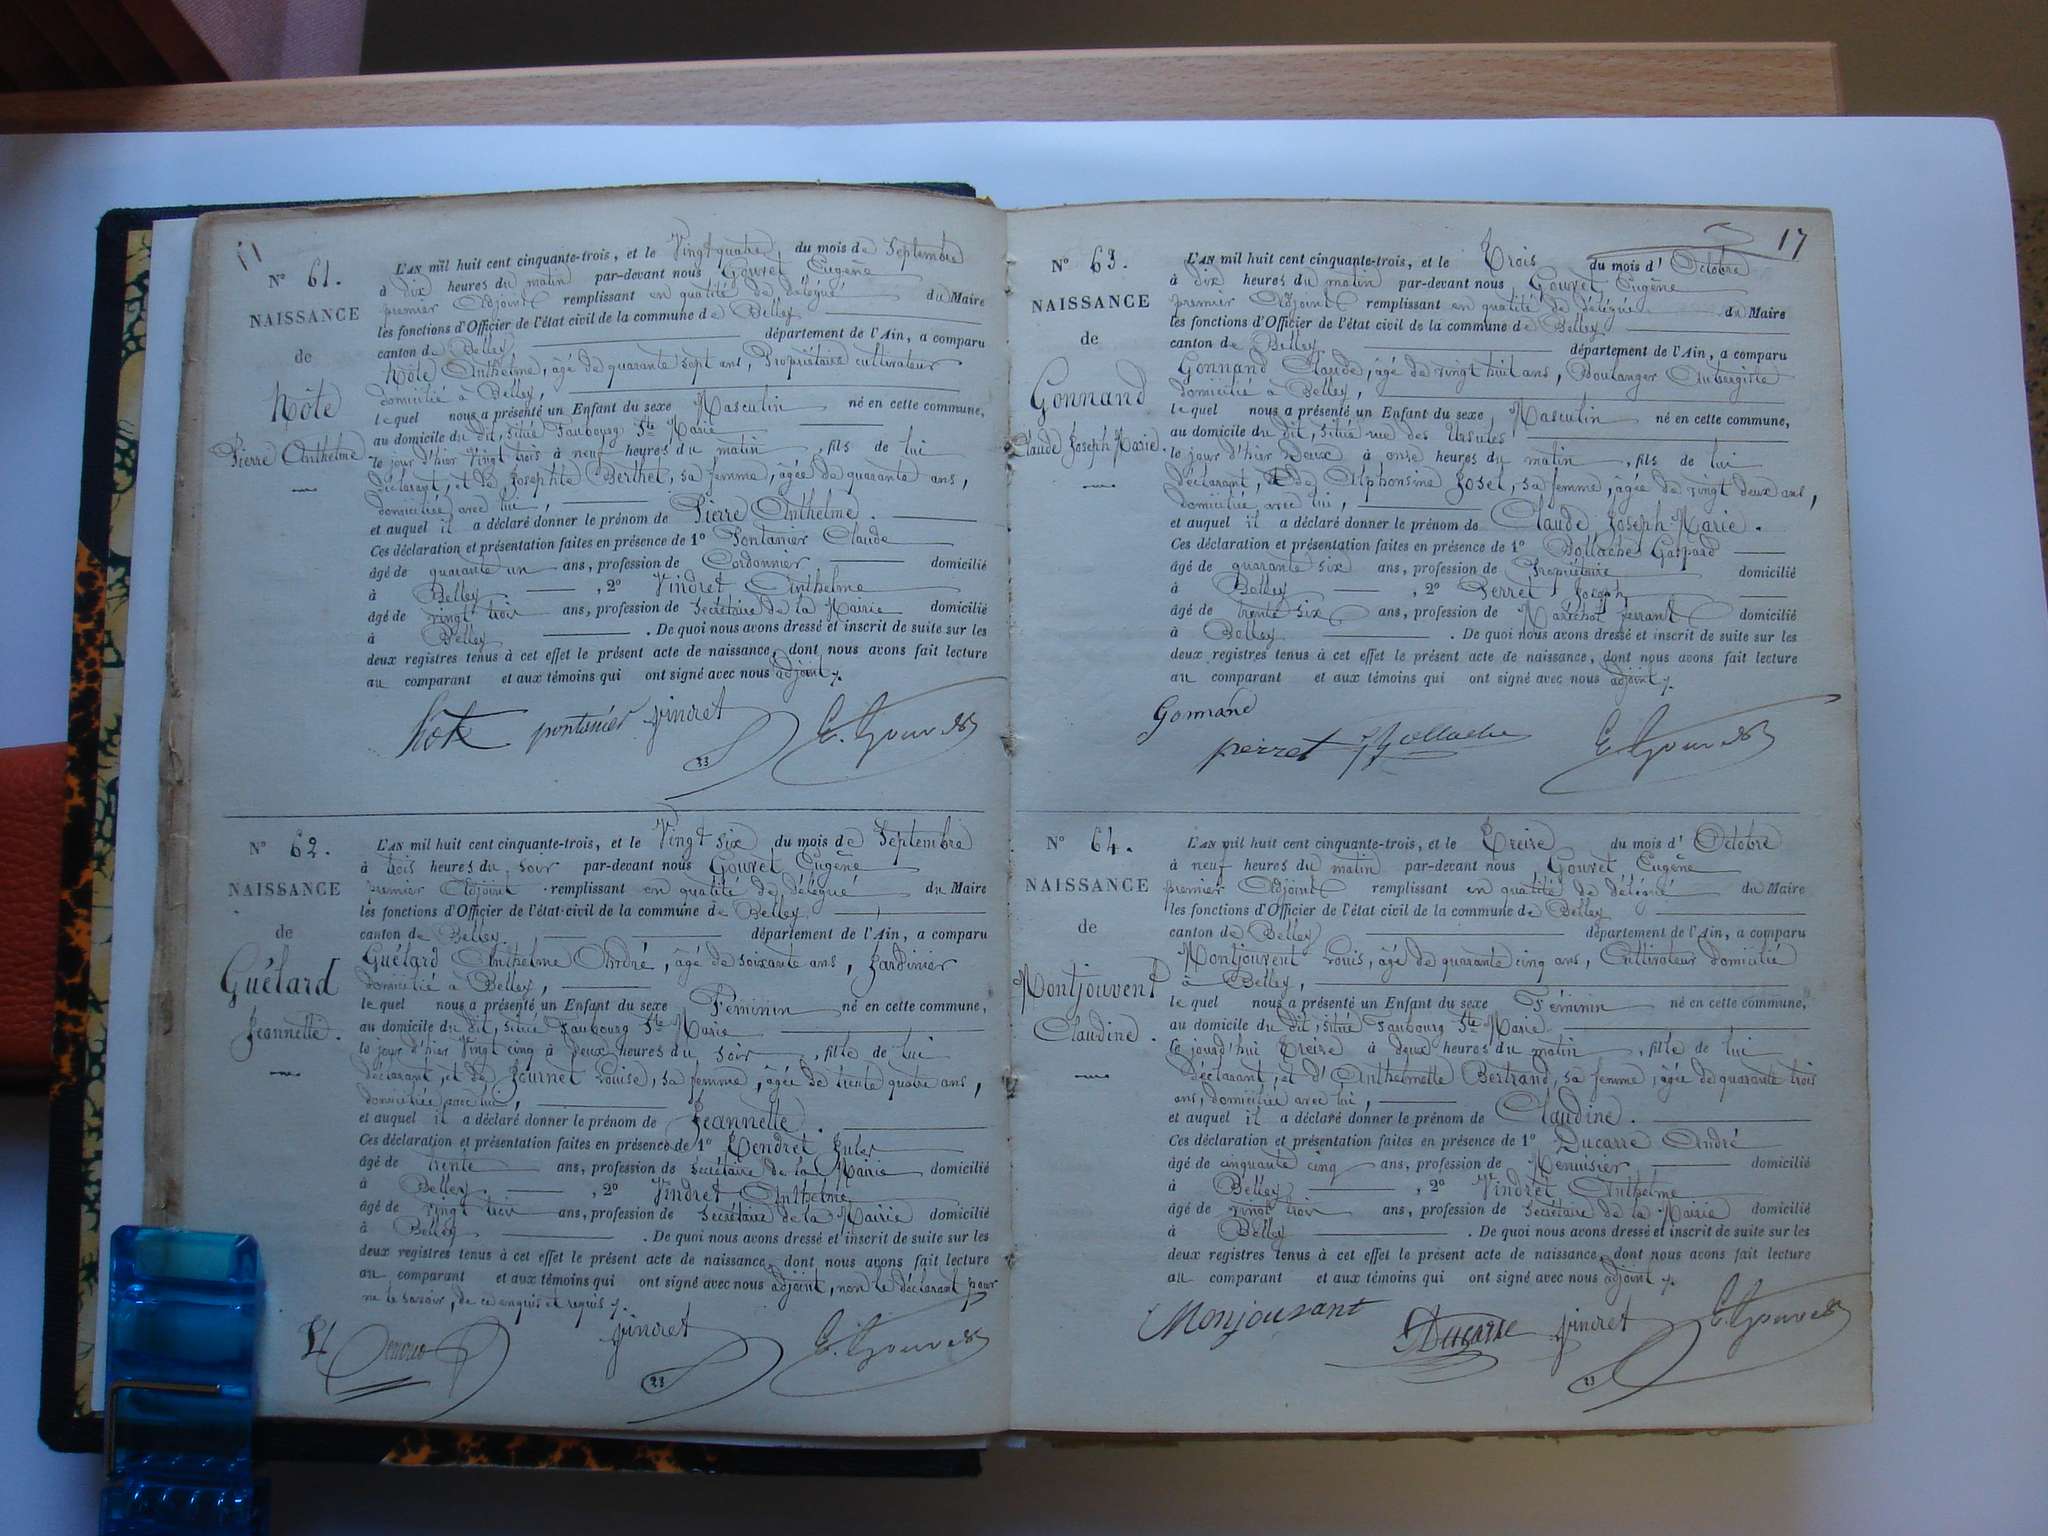 N° 61.
NAISSANCE
de
Hôte
Pierre Anthelme
L'AN mil huit cent cinquante-trois, et le Vingt quatre du mois de Septembre
à dix heures du matin par-devant nous Gouvret Eugène
premier Adjoint remplissant en qualité de délégué du Maire
les fonctions d'Officier de l'état civil de la commune de Belley
canton de Belley département de l'Ain, a comparu
Hôte Anthelme, âgé de quarante sept ans, Propriétaire cultivateur
domicilié à Belley,
le quel nous a présenté un Enfant du sexe Masculin né en cette commune,
au domicile du dit, situé Faubourg Ste Marie
le jour d'hier Vingt trois à neuf heures du matin, fils de lui
déclarant, et de Josephte Berthet, sa femme, âgée de quarante ans,
domiciliée avec lui,
et auquel il a déclaré donner le prénom de Pierre Anthelme.
Ces déclaration et présentation faites en présence de 1° Fontanier Claude
âgé de quarante un ans, profession de Cordonnier domicilié
à Belley, 2° Vindret Anthelme
âgé de vingt trois ans, profession de Secrétaire de la Mairie domicilié
à Belley. De quoi nous avons dressé et inscrit de suite sur les
deux registres tenus à cet effet le présent acte de naissance, dont nous avons fait lecture
au comparant et aux témoins qui ont signé avec nous adjoint
hote pontanier vindret E. Gouvret
N° 62.
NAISSANCE
de
Guélard
Jeannette.
L'AN mil huit cent cinquante-trois, et le Vingt six du mois de Septembre
à trois heures du soir par-devant nous Gouvret Eugène
premier Adjoint remplissant en qualité de délégué du Maire
les fonctions d'Officier de l'état-civil de la commune de Belley
canton de Belley département de l'Ain, a comparu
Guélard Anthelme André, âgé de soixante ans, Jardinier
domicilié à Belley,
le quel nous a présenté un Enfant du sexe Féminin né en cette commune,
au domicile du dit, situé Faubourg Ste Marie
le jour d'hier Vingt cinq à deux heures du soir, fille de lui
déclarant, et de Journet Louise, sa femme, âgée de trente quatre ans,
domiciliée avec lui,
et auquel il a déclaré donner le prénom de Jeannette.
Ces déclaration et présentation faites en présence de 1° Jules
âgé de trente ans, profession de Secrétaire de la Mairie domicilié
à Belley, 2° Vindret Anthelme
âgé de vingt trois ans, profession de Secrétaire de la Mairie domicilié
à Belley. De quoi nous avons dressé et inscrit de suite sur les
deux registres tenus à cet effet le présent acte de naissance, dont nous avons fait lecture
au comparant et aux témoins qui ont signé avec nous adjoint, non le déclarant pour
ne le savoir, de ce enquis et requis
vindret E. Gouvret
17
N° 63.
NAISSANCE
de
Gonnand
Claude Joseph Marie.
L'AN mil huit cent cinquante-trois, et le Trois du mois d'Octobre
à dix heures du matin par-devant nous Gouvret Eugène
premier Adjoint remplissant en qualité de délégué du Maire
les fonctions d'Officier de l'état civil de la commune de Belley
canton de Belley département de l'Ain, a comparu
Gonnand Claude, âgé de vingt huit ans, Boulanger Aubergiste
domicilié à Belley,
le quel nous a présenté un Enfant du sexe Masculin né en cette commune,
au domicile du dit, situé rue des Ursules
le jour d'hier Deux à onze heures du matin, fils de lui
déclarant, et de Alphonsine Joset, sa femme, âgée de vingt deux ans,
domiciliée avec lui,
et auquel il a déclaré donner le prénom de Claude Joseph-Marie.
Ces déclaration et présentation faites en présence de 1° Bollache Gaspard
âgé de quarante six ans, profession de Propriétaire domicilié
à Belley, 2° Perret Joseph
âgé de trente six ans, profession de Maréchal ferrant domicilié
à Belley. De quoi nous avons dressé et inscrit de suite sur les
deux registres tenus à cet effet le présent acte de naissance, dont nous avons fait lecture
au comparant et aux témoins qui ont signé avec nous adjoint
Gonnand
perret Bollache E. Gouvret
N° 64.
NAISSANCE
de
Montjouvent
Claudine.
L'AN mil huit cent cinquante-trois, et le Treize du mois d'Octobre
à neuf heures du matin par-devant nous Gouvret Eugène
premier Adjoint remplissant en qualité de délégué du Maire
les fonctions d'Officier de l'état civil de la commune de Belley
canton de Belley département de l'Ain, a comparu
Montjouvent Louis, âgé de quarante cinq ans, Cultivateur domicilié
à Belley,
le quel nous a présenté un Enfant du sexe Féminin né en cette commune,
au domicile du dit, situé Faubourg Ste Marie
le jourd'hui Treize à deux heures du matin, fille de lui
déclarant, et d'Anthelmette Bertrand, sa femme, âgée de quarante trois
ans, domiciliée avec lui,
et auquel il a déclaré donner le prénom de Claudine.
Ces déclaration et présentation faites en présence de 1° Ducarre André
âgé de cinquante cinq ans, profession de Menuisier domicilié
à Belley, 2° Vindret Anthelme
âgé de vingt trois ans, profession de Secrétaire de la Mairie domicilié
à Belley. De quoi nous avons dressé et inscrit de suite sur les
deux registres tenus à cet effet le présent acte de naissance, dont nous avons fait lecture
au comparant et aux témoins qui ont signé avec nous adjoint
Monjouvant Ducarre vindret E. Gouvret